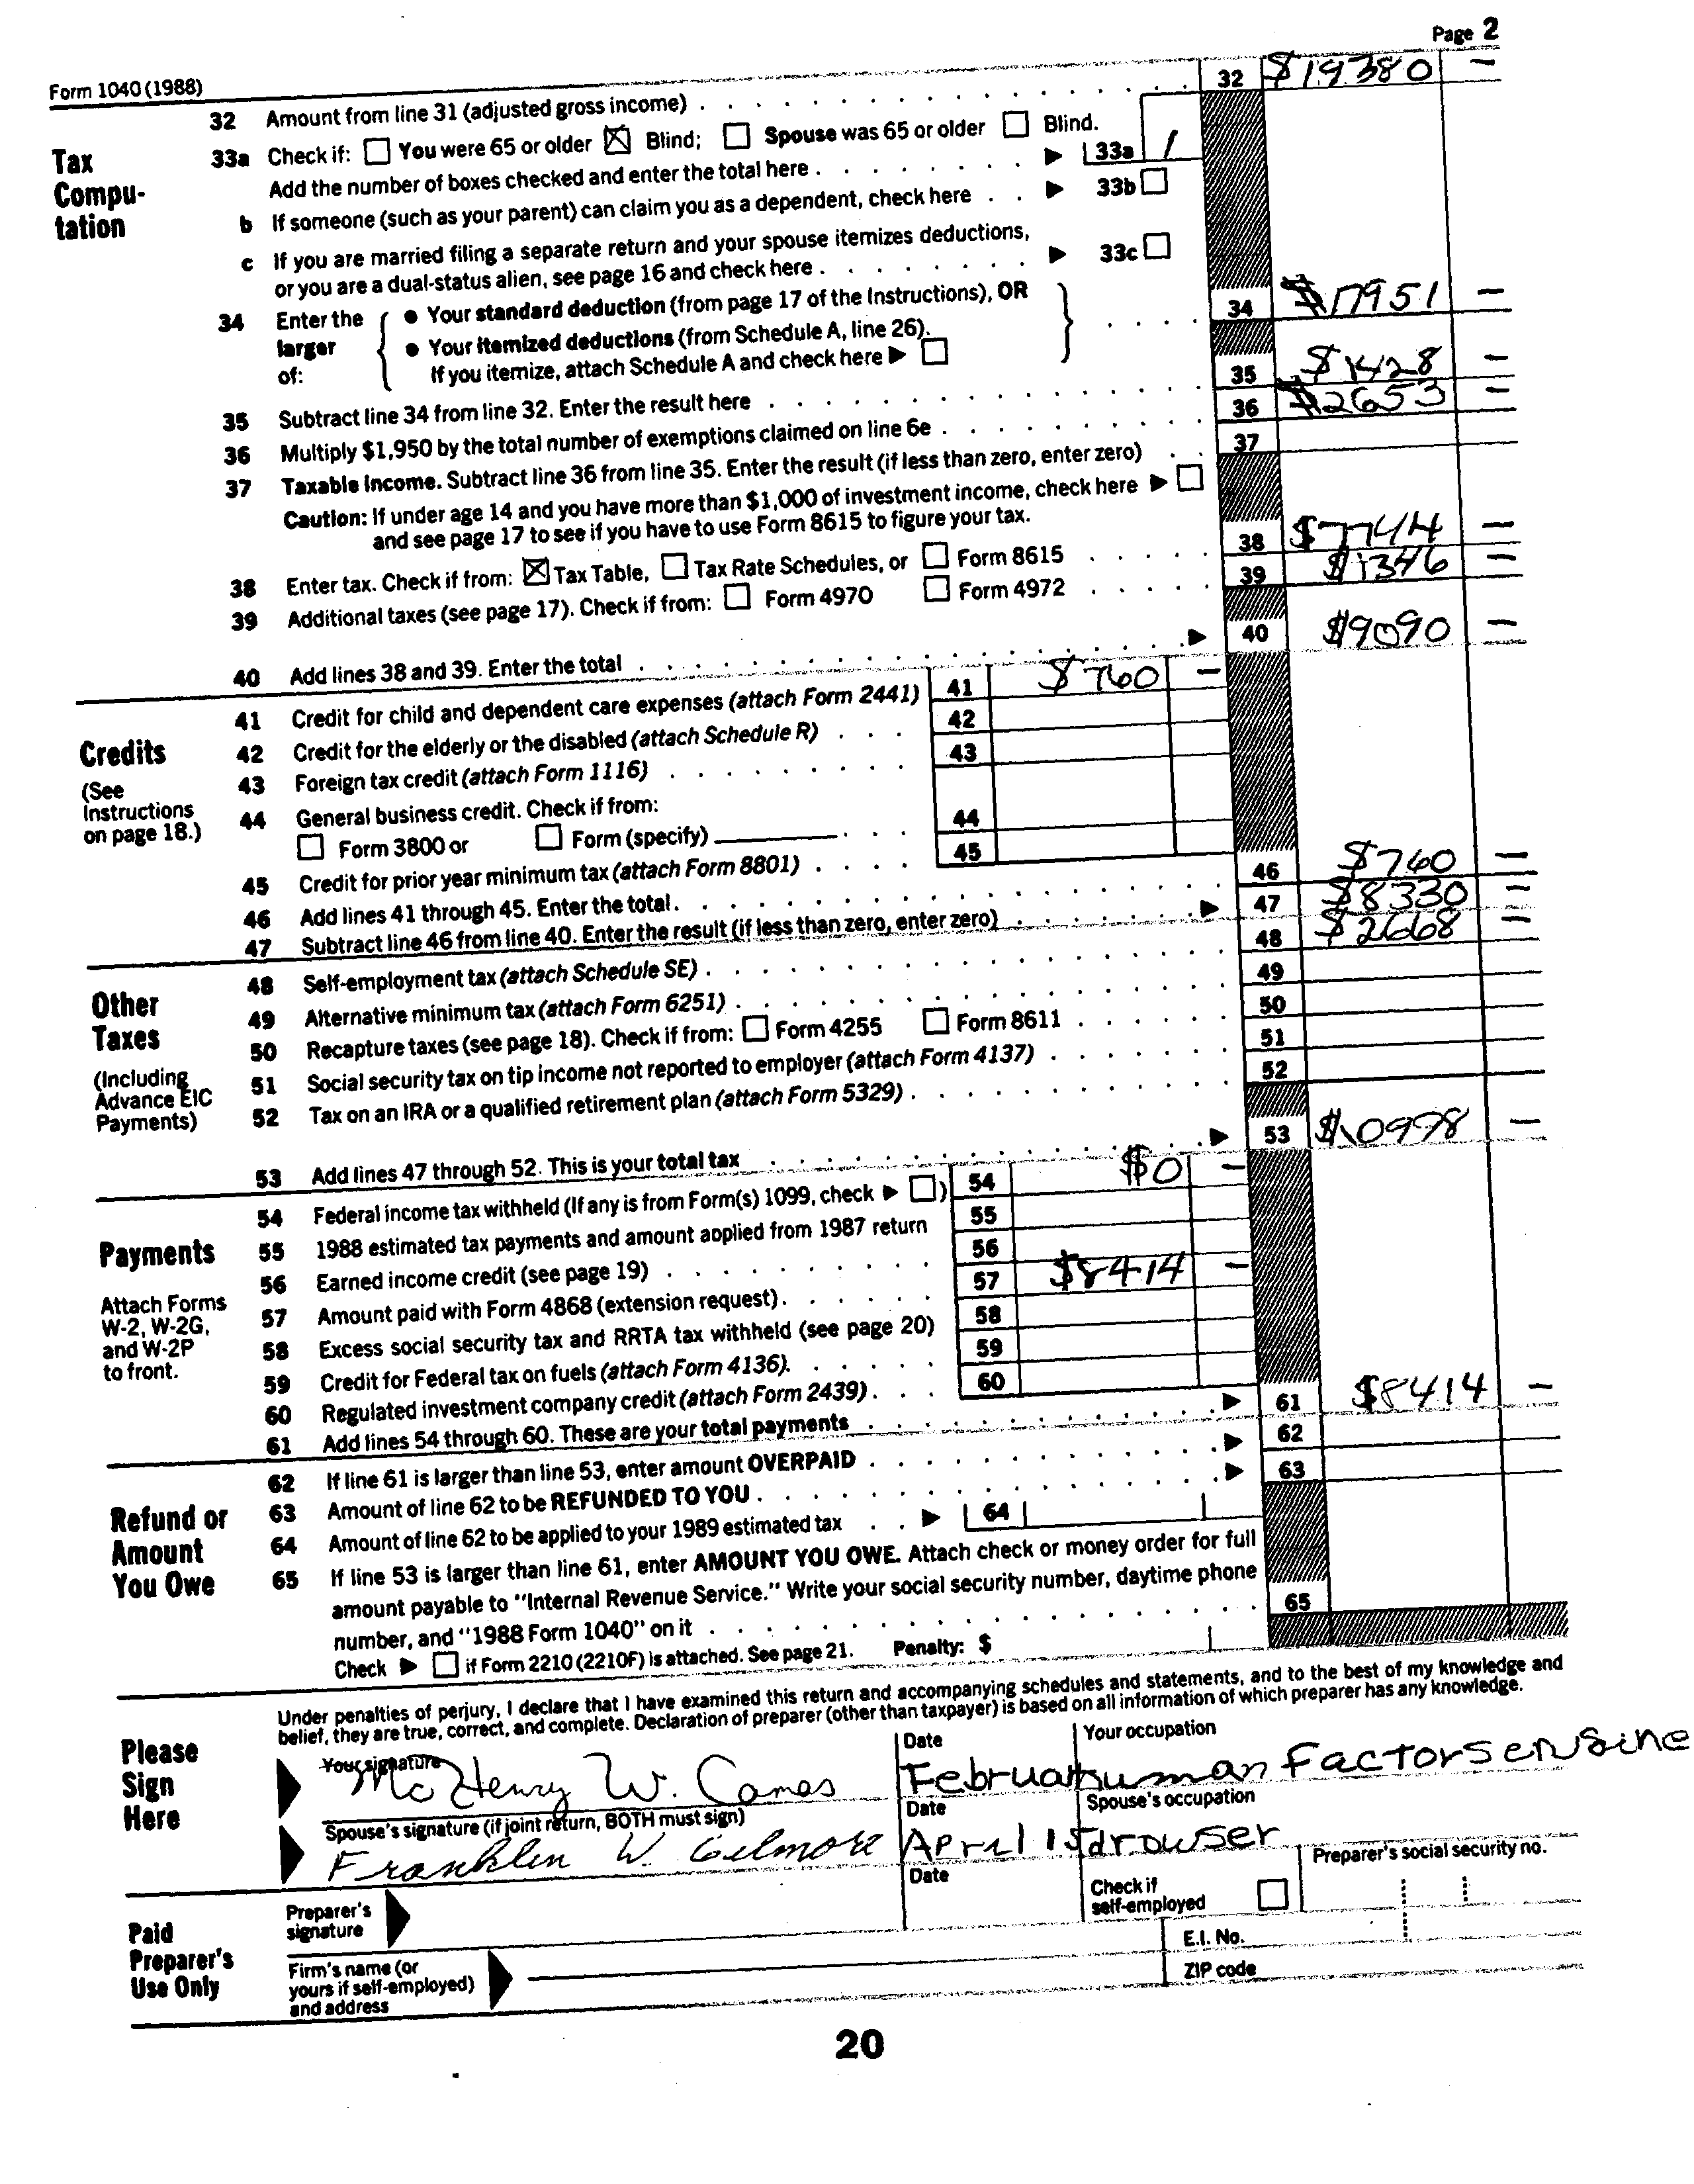 Page 2
Form 1040 (1988)
32 Amount from line 31 (adjusted gross income) . . . 32 $19380 –
Tax Compu-tation
33a Check if: ☐ You were 65 or older ☒ Blind; ☐ Spouse was 65 or older ☐ Blind.
Add the number of boxes checked and enter the total here . . . ▶ 33a 1
b If someone (such as your parent) can claim you as a dependent, check here . . ▶ 33b ☐
c If you are married filing a separate return and your spouse itemizes deductions,
or you are a dual-status alien, see page 16 and check here . . . ▶ 33c ☐
34 Enter the larger of: { ● Your standard deduction (from page 17 of the Instructions), OR
● Your itemized deductions (from Schedule A, line 26).
If you itemize, attach Schedule A and check here ▶ ☐ } . . . . 34 $17951 –
35 Subtract line 34 from line 32. Enter the result here . . . 35 $1428 –
36 Multiply $1,950 by the total number of exemptions claimed on line 6e . . . 36 $2653 –
37 Taxable income. Subtract line 36 from line 35. Enter the result (if less than zero, enter zero) . . 37
Caution: If under age 14 and you have more than $1,000 of investment income, check here ▶ ☐
and see page 17 to see if you have to use Form 8615 to figure your tax.
38 Enter tax. Check if from: ☒ Tax Table, ☐ Tax Rate Schedules, or ☐ Form 8615 . . . . 38 $7744 –
39 Additional taxes (see page 17). Check if from: ☐ Form 4970 ☐ Form 4972 . . . . . 39 $1346 –
40 Add lines 38 and 39. Enter the total . . . ▶ 40 $9090 –
Credits
(See Instructions on page 18.)
41 Credit for child and dependent care expenses (attach Form 2441) 41 $760 –
42 Credit for the elderly or the disabled (attach Schedule R) . . . 42
43 Foreign tax credit (attach Form 1116) . . . 43
44 General business credit. Check if from:
☐ Form 3800 or ☐ Form (specify) . . . 44
45 Credit for prior year minimum tax (attach Form 8801) . . . . 45
46 Add lines 41 through 45. Enter the total . . . 46 $760 –
47 Subtract line 46 from line 40. Enter the result (if less than zero, enter zero) . . . ▶ 47 $8330 –
Other Taxes
(Including Advance EIC Payments)
48 Self-employment tax (attach Schedule SE) . . . 48 $2668 –
49 Alternative minimum tax (attach Form 6251) . . . 49
50 Recapture taxes (see page 18). Check if from: ☐ Form 4255 ☐ Form 8611 . . . 50
51 Social security tax on tip income not reported to employer (attach Form 4137) . . . 51
52 Tax on an IRA or a qualified retirement plan (attach Form 5329) . . . 52
53 Add lines 47 through 52. This is your total tax . . . ▶ 53 $10998 –
Payments
Attach Forms W-2, W-2G, and W-2P to front.
54 Federal income tax withheld (If any is from Form(s) 1099, check ▶ ☐) 54 $0 –
55 1988 estimated tax payments and amount applied from 1987 return 55
56 Earned income credit (see page 19) . . . 56
57 Amount paid with Form 4868 (extension request) . . . 57 $8414 –
58 Excess social security tax and RRTA tax withheld (see page 20) 58
59 Credit for Federal tax on fuels (attach Form 4136) . . . 59
60 Regulated investment company credit (attach Form 2439) . . . 60
61 Add lines 54 through 60. These are your total payments . . . ▶ 61 $8414 –
Refund or Amount You Owe
62 If line 61 is larger than line 53, enter amount OVERPAID . . . ▶ 62
63 Amount of line 62 to be REFUNDED TO YOU . . . ▶ 63
64 Amount of line 62 to be applied to your 1989 estimated tax . . ▶ 64
65 If line 53 is larger than line 61, enter AMOUNT YOU OWE. Attach check or money order for full
amount payable to "Internal Revenue Service." Write your social security number, daytime phone
number, and "1988 Form 1040" on it . . . 65
Check ▶ ☐ if Form 2210 (2210F) is attached. See page 21. Penalty: $
Please Sign Here
Under penalties of perjury, I declare that I have examined this return and accompanying schedules and statements, and to the best of my knowledge and
belief, they are true, correct, and complete. Declaration of preparer (other than taxpayer) is based on all information of which preparer has any knowledge.
Your signature Date Your occupation
McHenry W. Comas Februa human factors engine
Spouse's signature (if joint return, BOTH must sign) Date Spouse's occupation
Franklin W. Gilmore April 15 drowser
Paid Preparer's Use Only
Preparer's signature Date Check if self-employed ☐ Preparer's social security no.
Firm's name (or yours if self-employed) and address E.I. No.
ZIP code
20